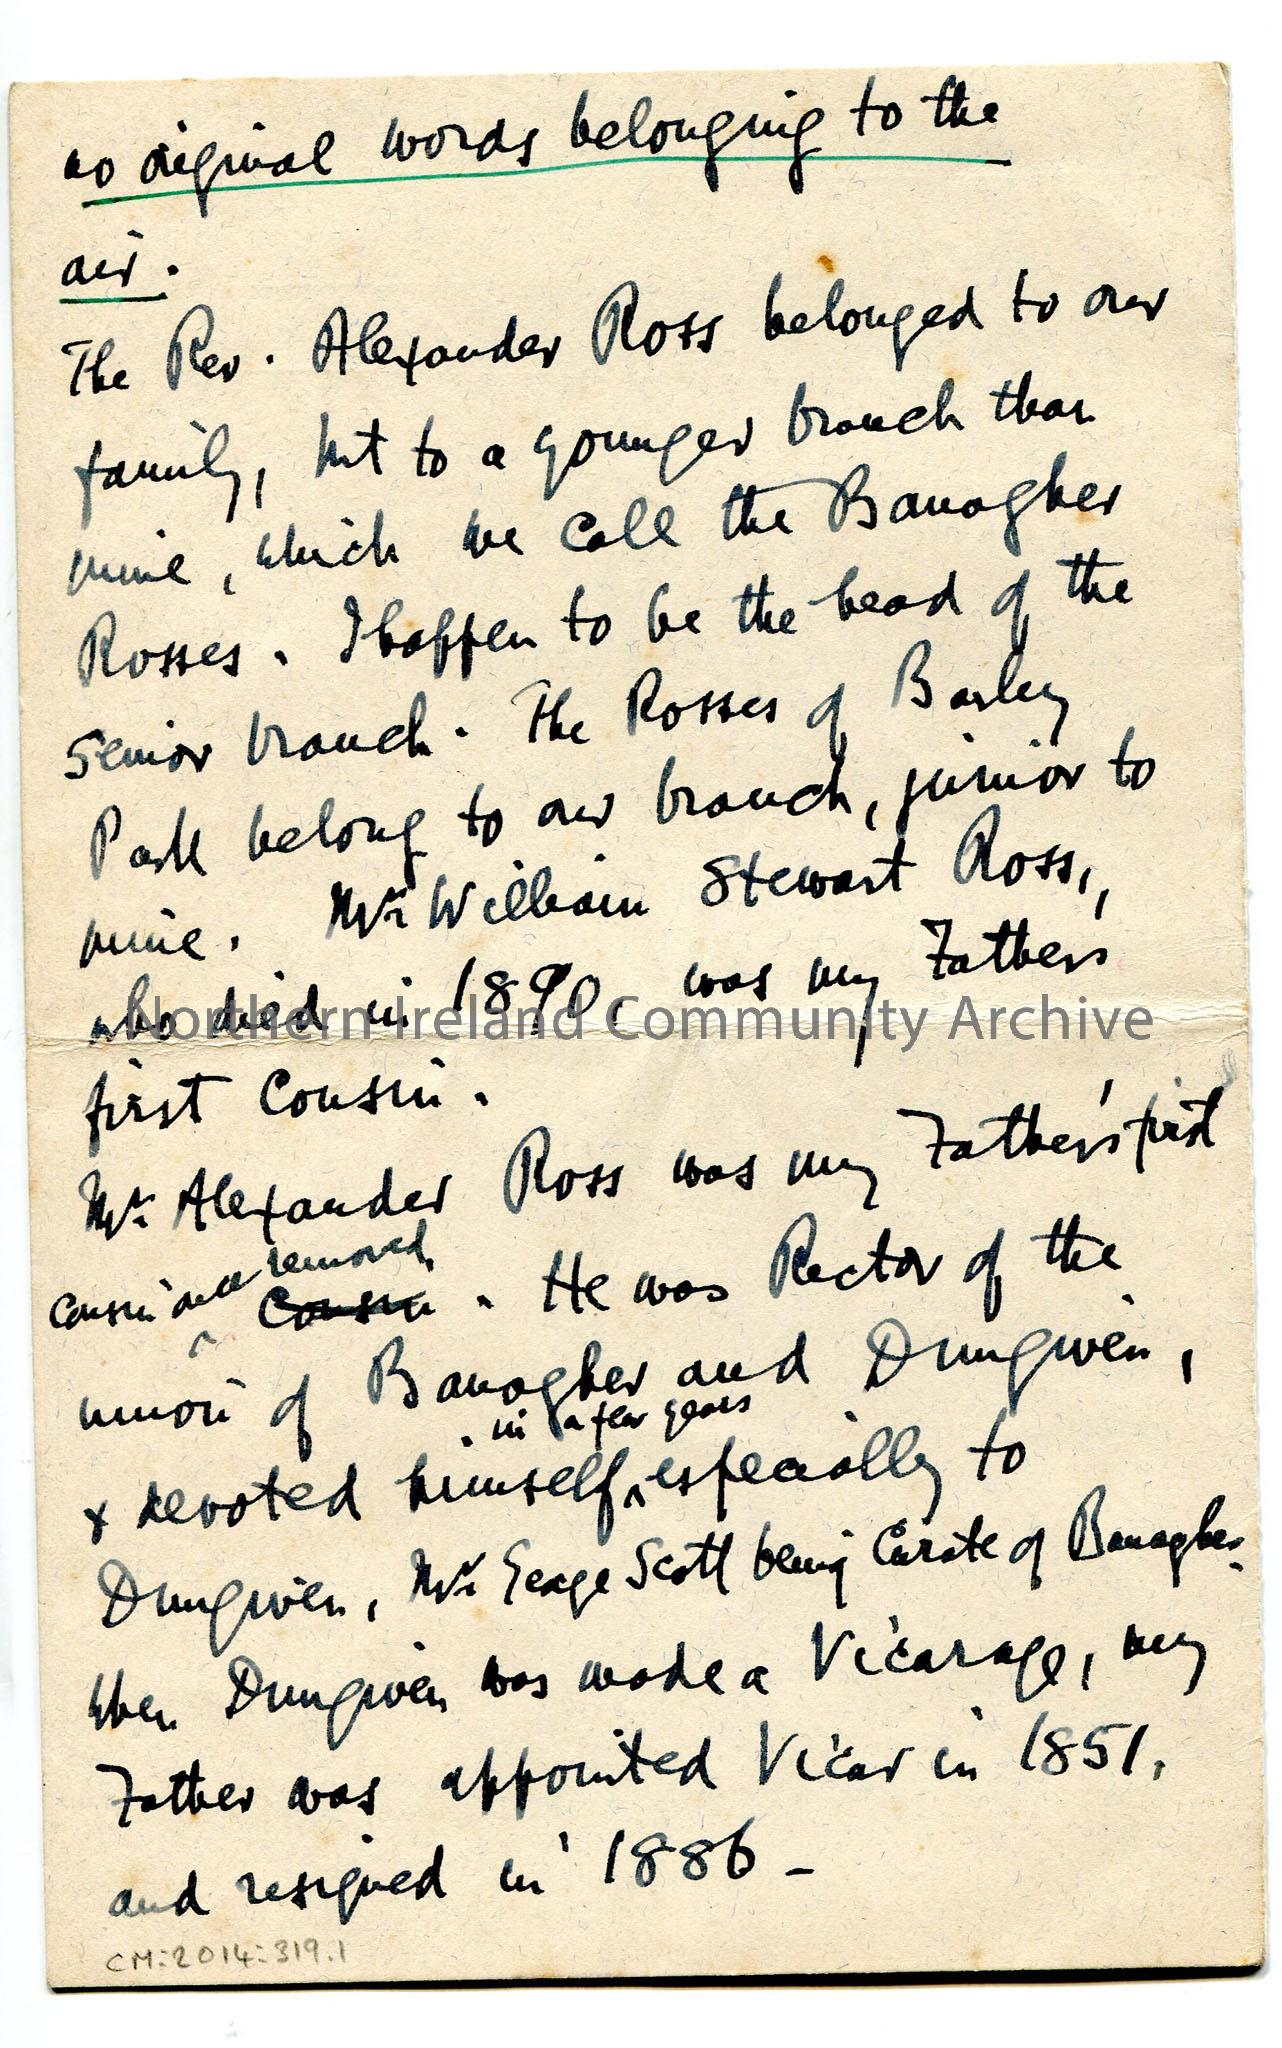 no original words belonging to the
air.
The Rev. Alexander Ross belonged to our
family, but to a younger branch than
mine, which we call the Banagher
Rosses. I happen to be the head of the
Senior branch. The Rosses of Barley
Park belong to our branch, junior to
mine. Mr William Stewart Ross,
who died in 1890, was my Father's
first Cousin.
Mr. Alexander Ross was my Father's first
Cousin once removed Cousin. He was Rector of the
union of Banagher and Dungiven,
in a few years
& devoted himself, especially to
Dungiven, Mr George Scott being Curate of Banagher.
When Dungiven was made a Vicarage, my
Father was appointed Vicar in 1851,
and resigned in 1886 –
CM:2014:319.1
Northern Ireland Community Archive